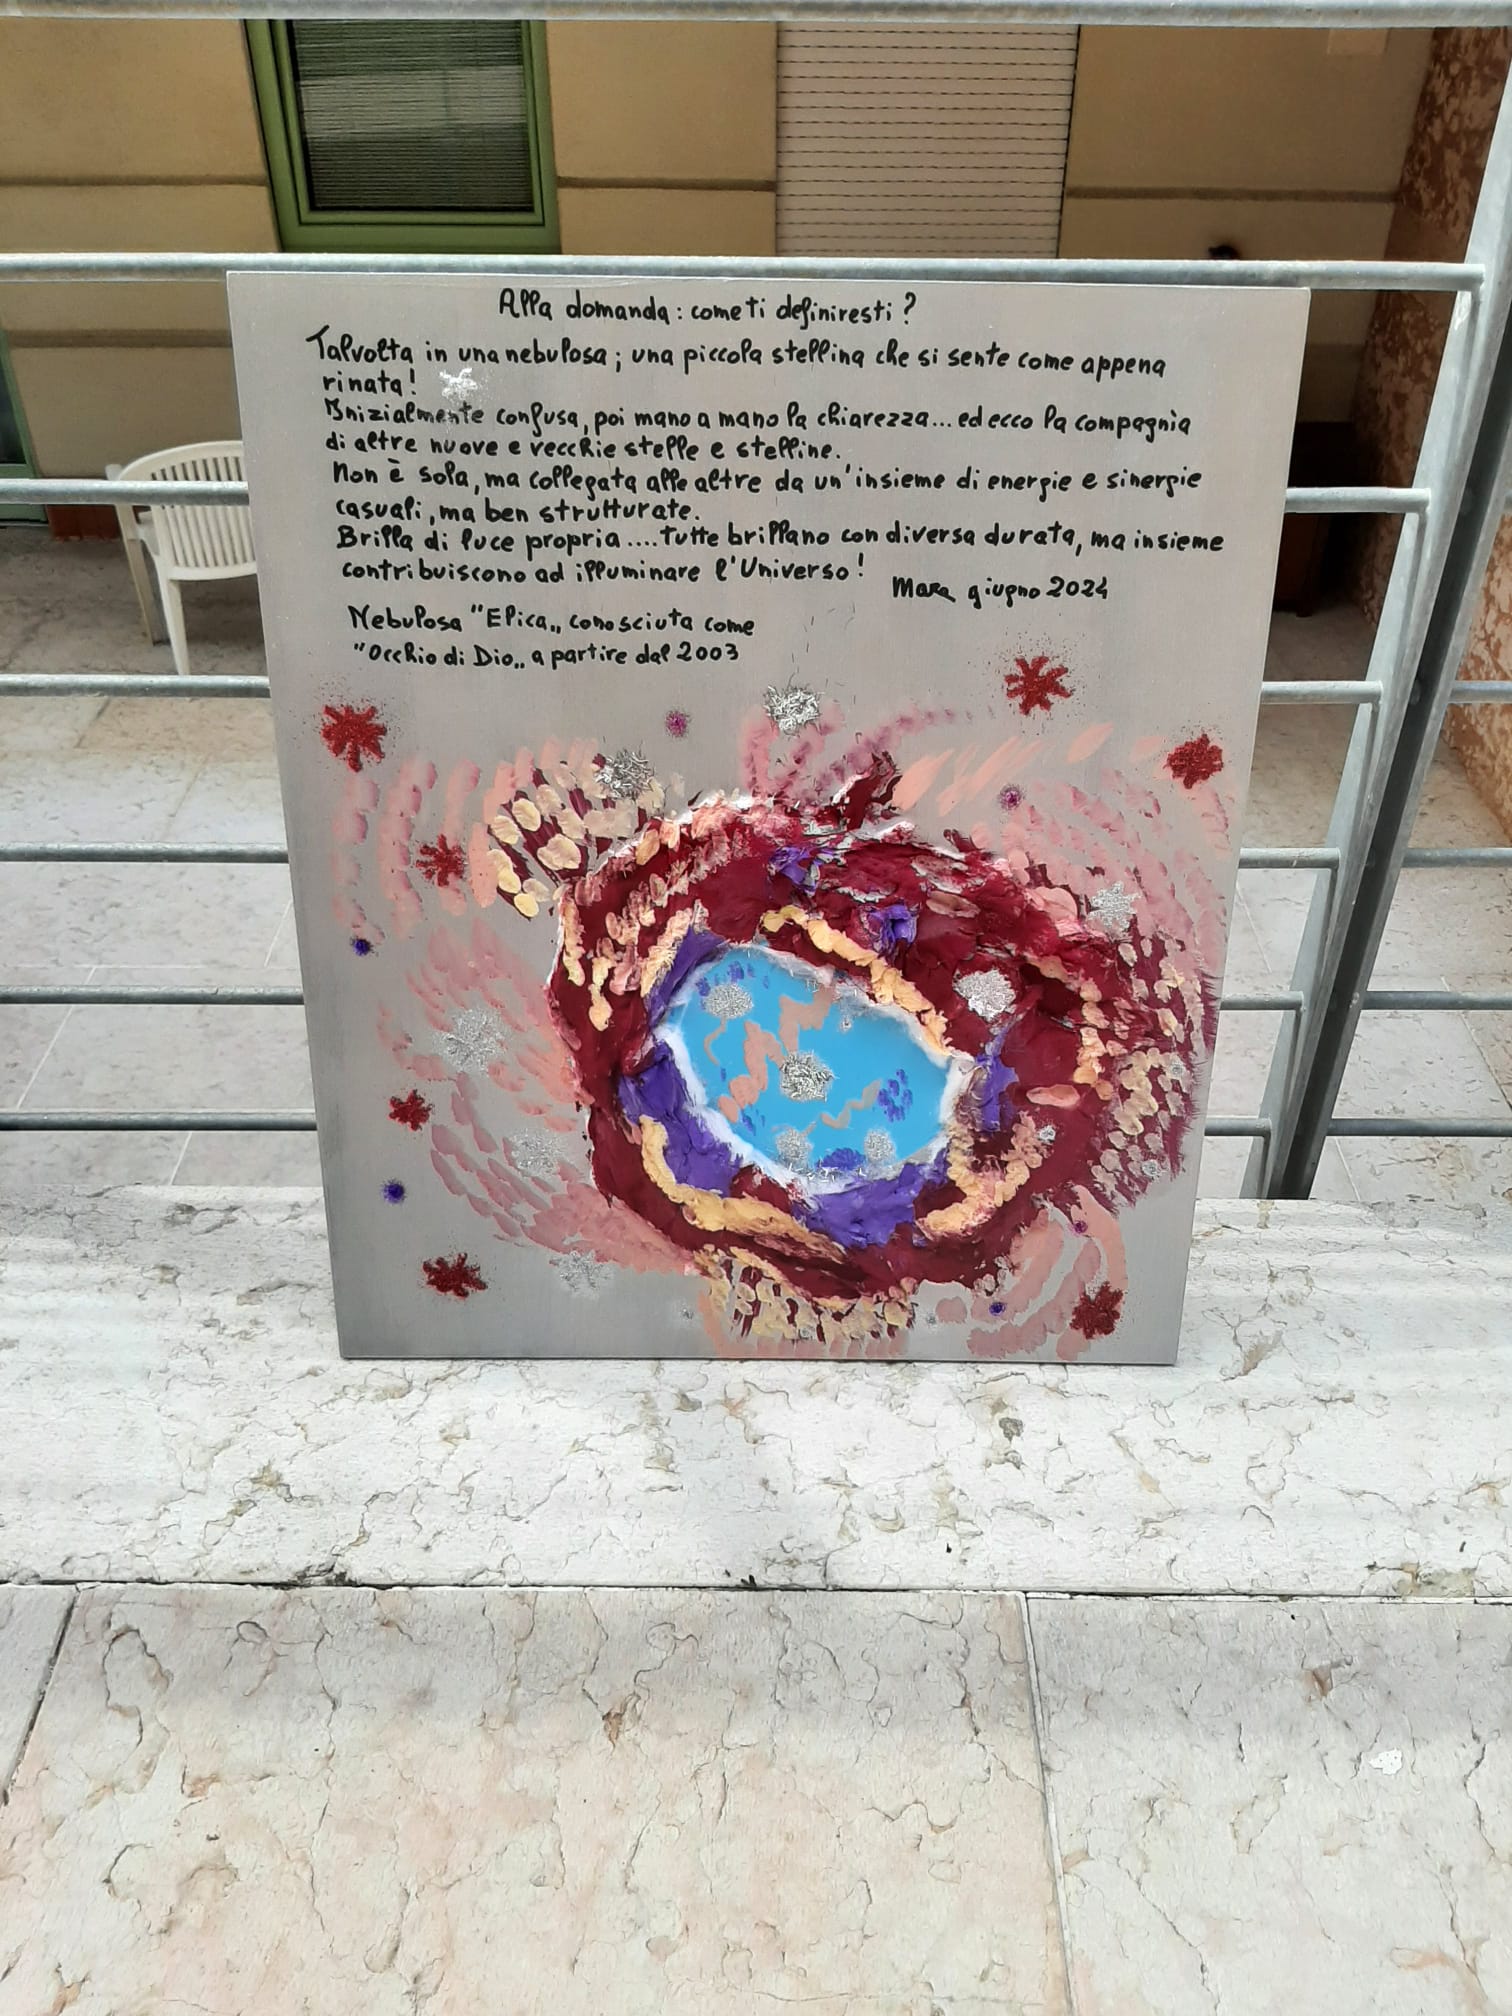 Alla domanda: come ti definiresti?
Talvolta in una nebulosa; una piccola stellina che si sente come appena
rinata!
Inizialmente confusa, poi mano a mano la chiarezza... ed ecco la compagnia
di altre nuove e vecchie stelle e stelline.
Non è sola, ma collegata alle altre da un'insieme di energie e sinergie
casuali, ma ben strutturate.
Brilla di luce propria.... tutte brillano con diversa durata, ma insieme
contribuiscono ad illuminare l'Universo!
Mara giugno 2024
Nebulosa "Elica„ conosciuta come
"Occhio di Dio„ a partire dal 2003